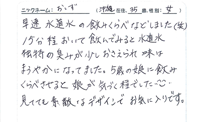 ニックネーム: おっす (沖縄 在住, 35 歳, 性別: 女)
早速 水道水の飲みくらべなどしました(笑)
15分程おいて飲んでみると水道水
独特の臭みが少しおさえられ味は
まろやかになってました。5歳の娘に飲みく
らべさせると娘が気づく程でした
見てても素敵なデザインでお気に入りです。